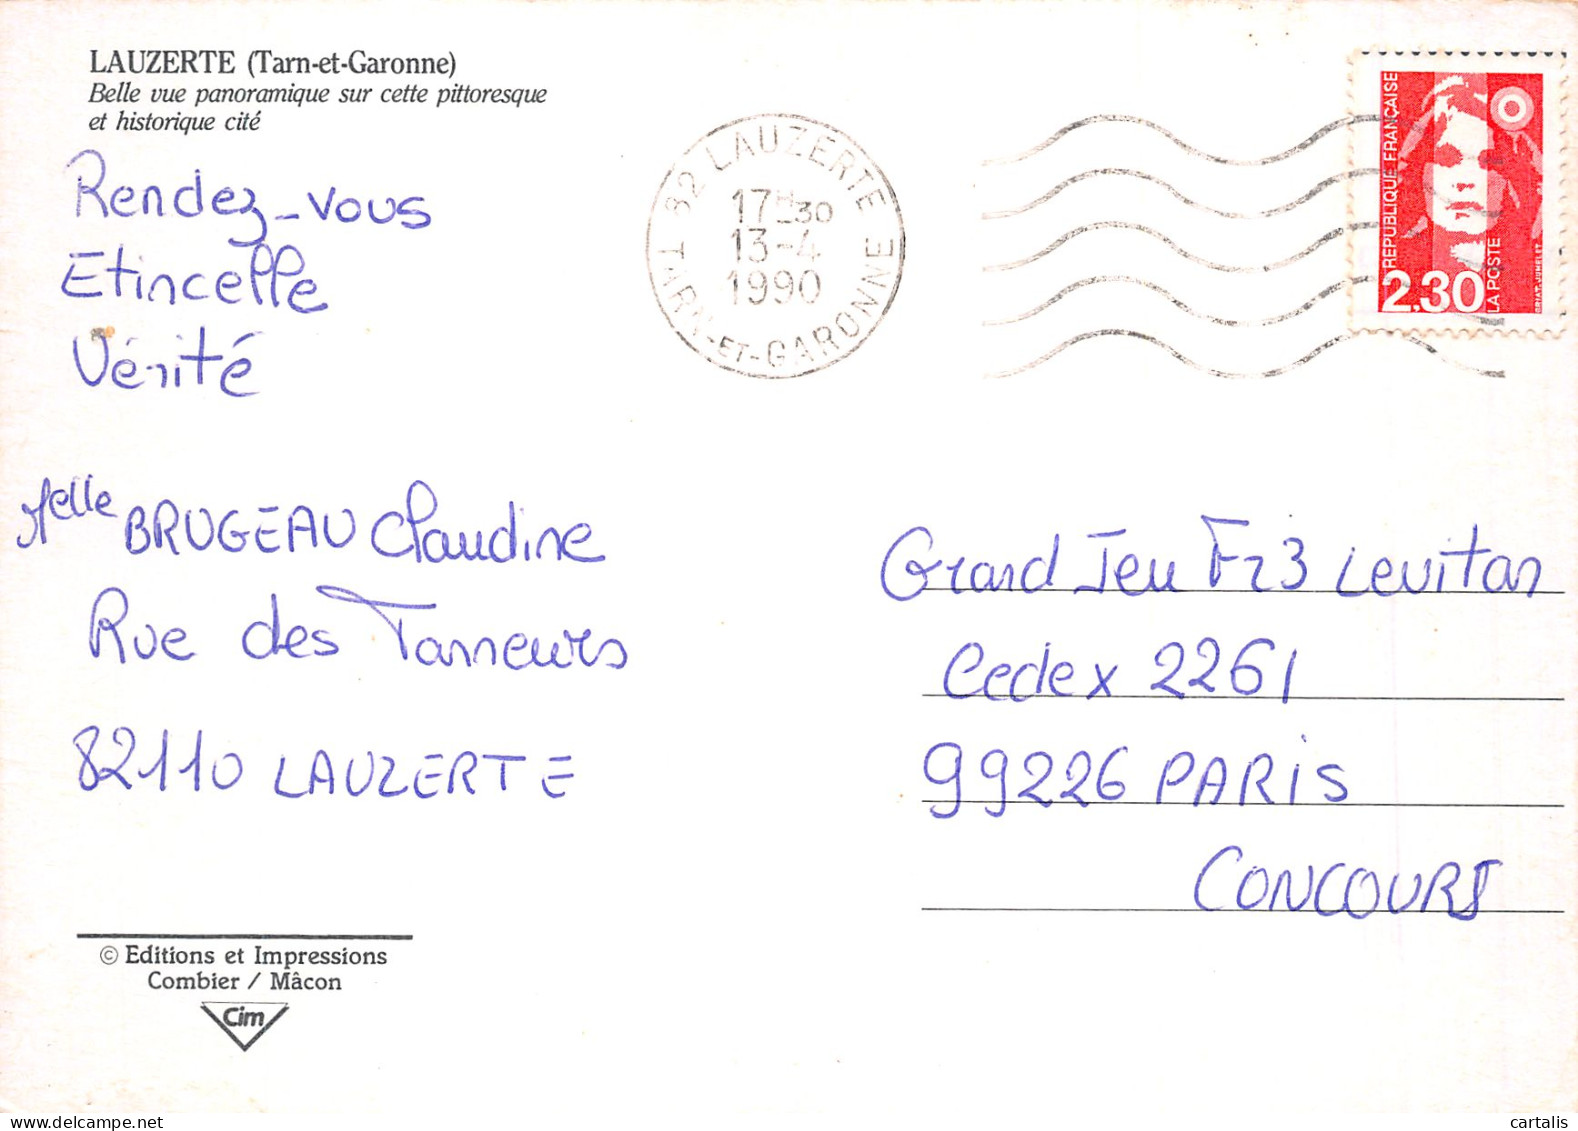 LAUZERTE (Tarn-et-Garonne)
Belle vue panoramique sur cette pittoresque
et historique cité
Rendez-vous
Etincelle
Vérité
Melle BRUGEAU Claudine
Rue des Tanneurs
82110 LAUZERTE
© Editions et Impressions
Combier / Mâcon
Cim
82 LAUZERTE
17H30
13-4
1990
TARN-ET-GARONNE
REPUBLIQUE FRANÇAISE
2,30
LA POSTE
BRIAT-JUMELET
Grand Jeu Fr3 Levitan
Cedex 2261
99226 PARIS
CONCOURS
cartalis